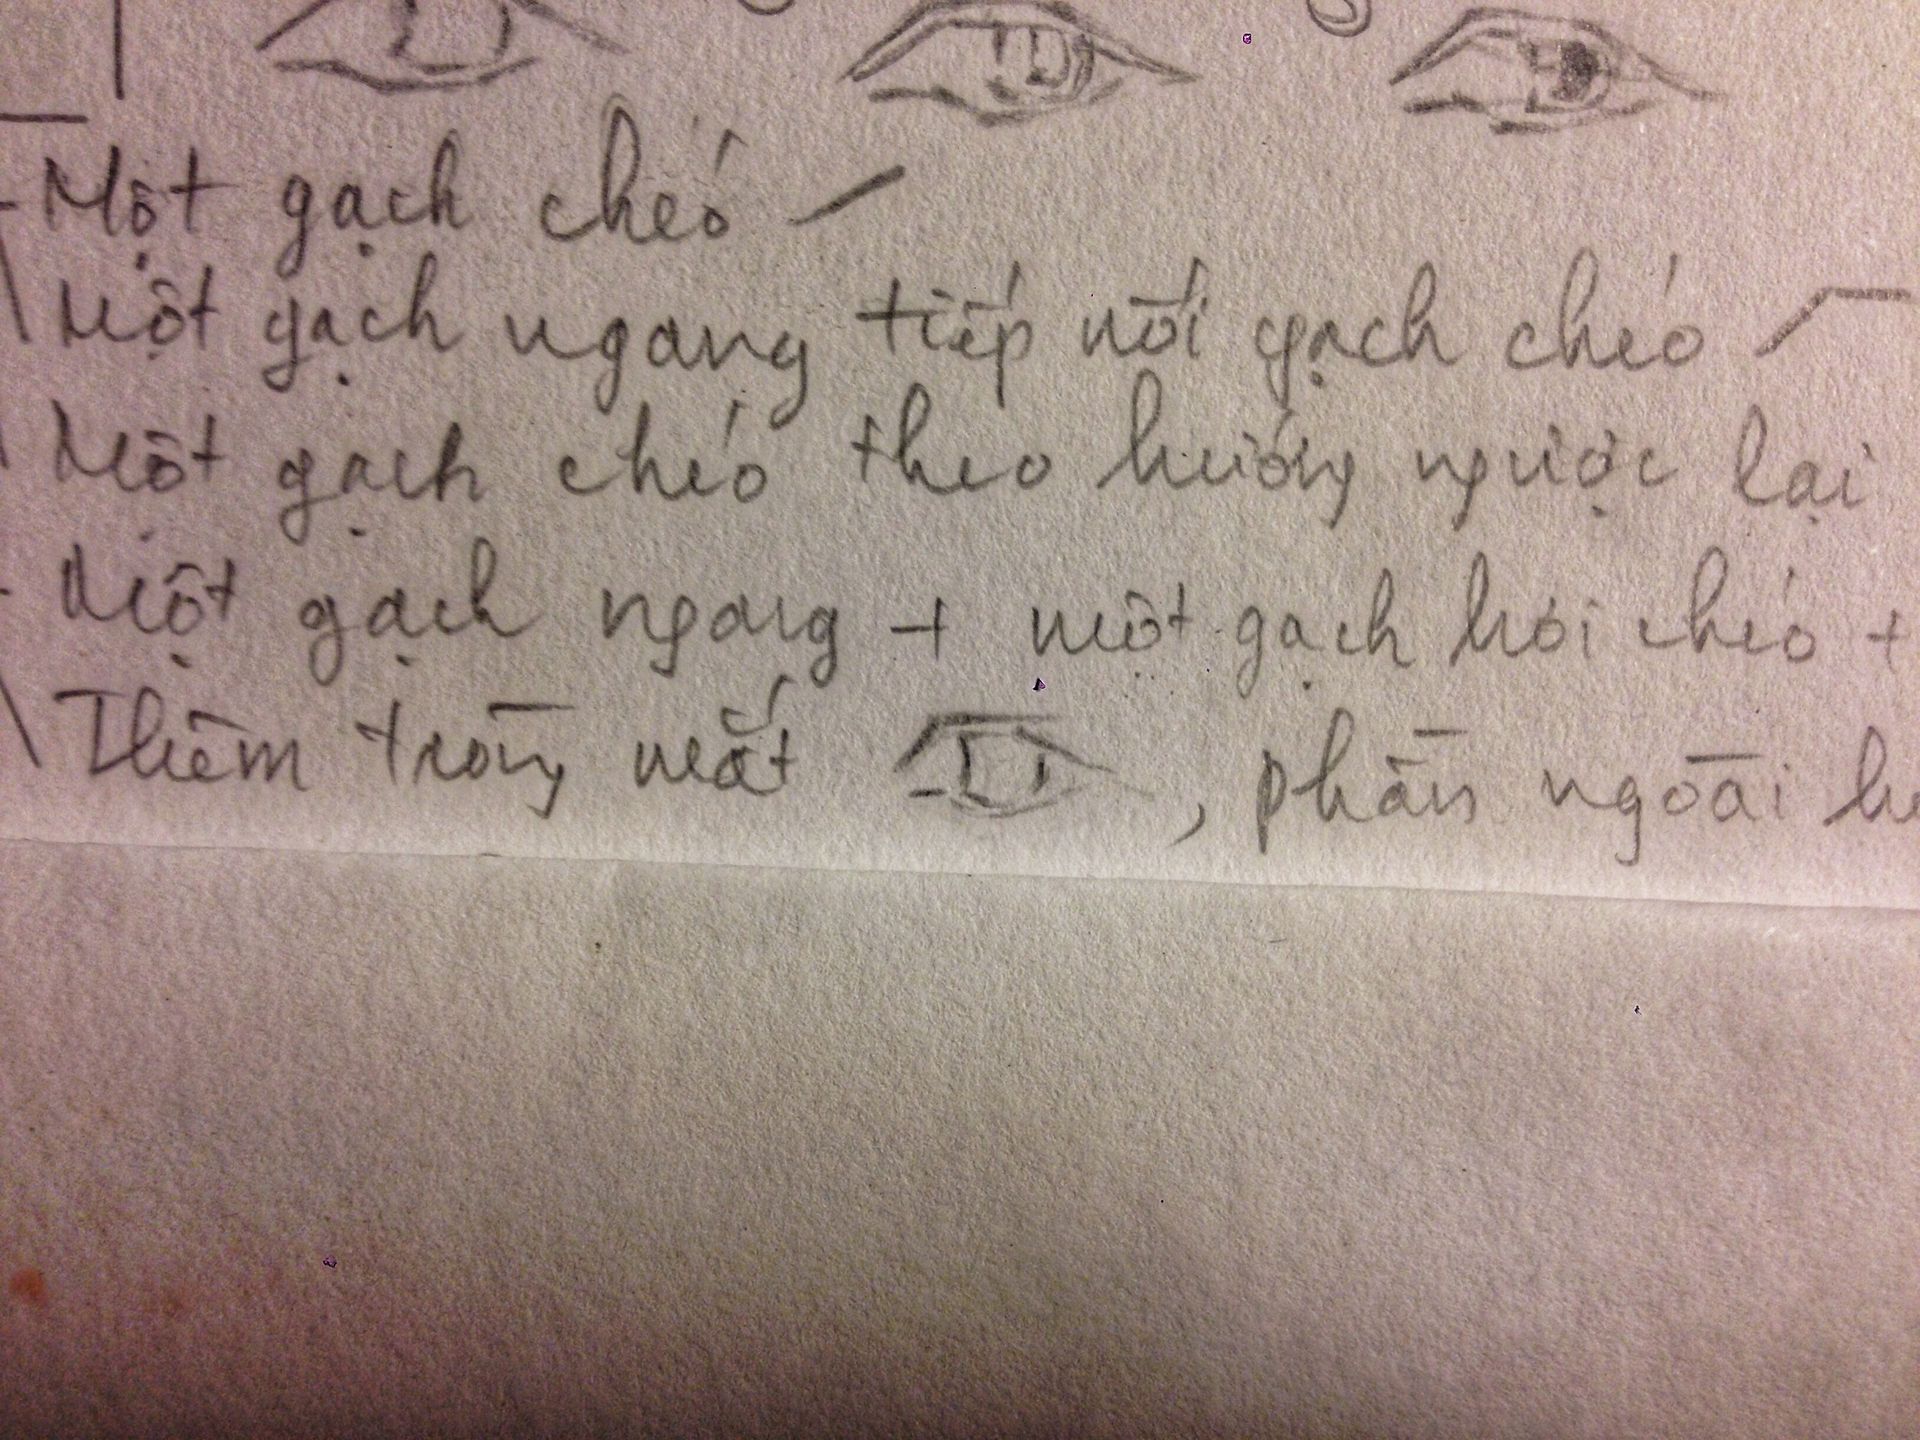 - Một gạch chéo
Một gạch ngang tiếp nối gạch chéo
Một gạch chéo theo hướng ngược lại
- Một gạch ngang + một gạch hơi chéo +
Thêm tròng mắt , phần ngoài